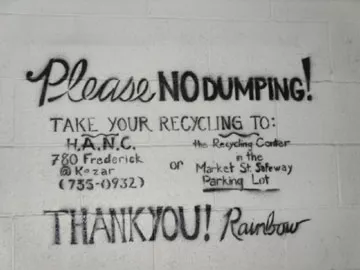 Please NO DUMPING!
TAKE YOUR RECYCLING TO:
H.A.N.C.
780 Frederick
@ Kezar
(755-0932)
or
the Recycling Center
in the
Market St. Safeway
Parking Lot
THANKYOU! Rainbow